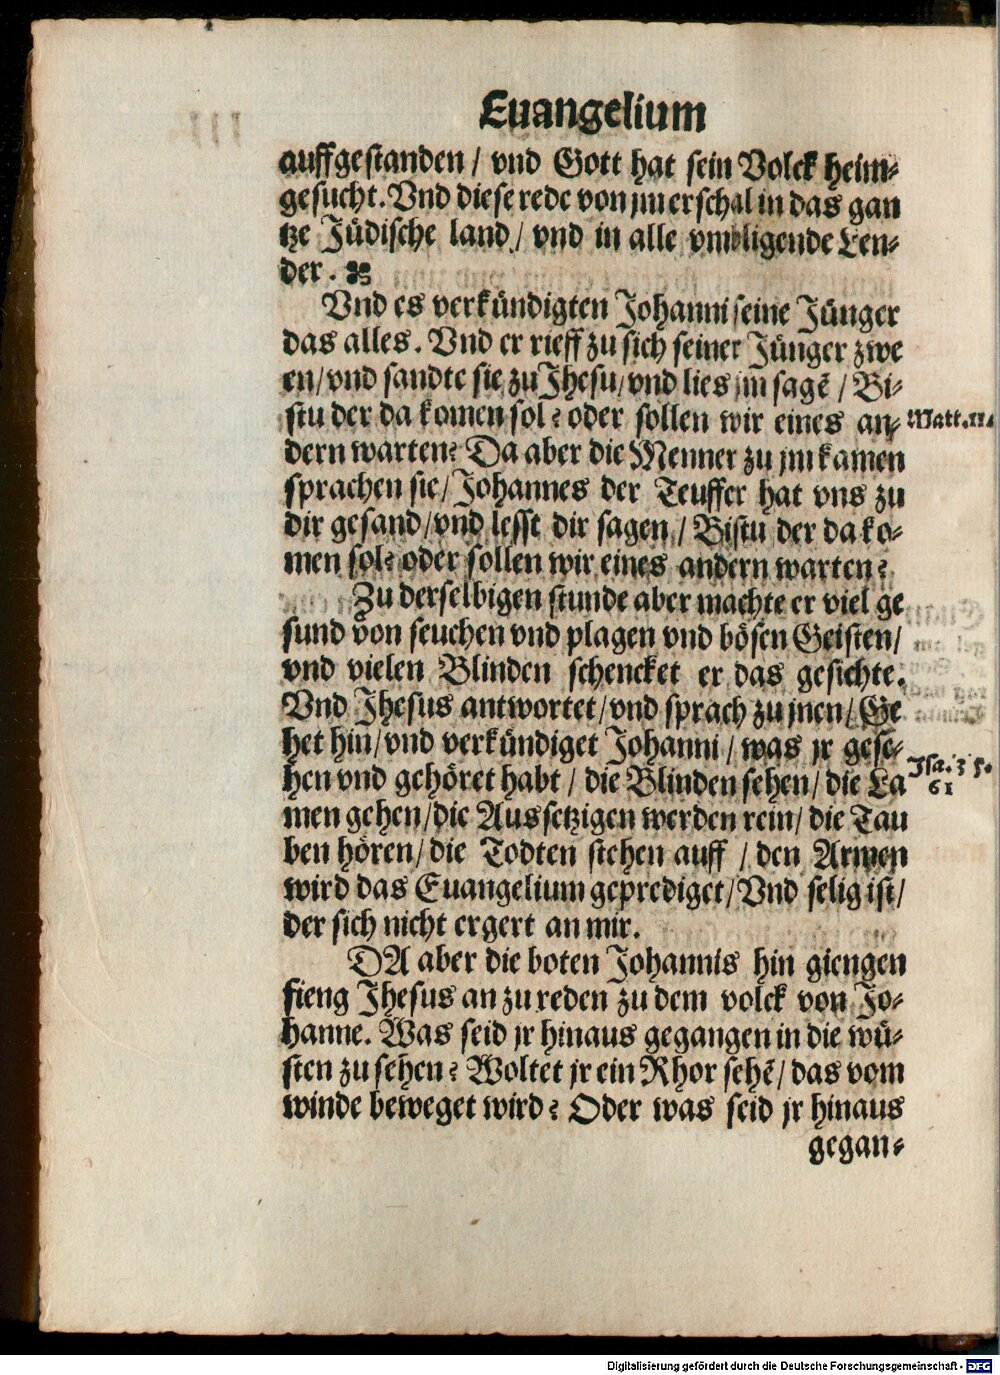 Euangelium
auffgestanden / vnd Gott hat sein Volck heim⸗
gesucht. Vnd diese rede von jm erschal in das gan
tze Jüdische land / vnd in alle vmbligende Len⸗
der. ⌘
Vnd es verkündigten Johanni seine Jünger
das alles. Vnd er rieff zu sich seiner Jünger zwe
en/vnd sandte sie zu Jhesu/vnd lies jm sagẽ / Bi⸗
stu der da komen sol? oder sollen wir eines an⸗
Matt.11.
dern warten? Da aber die Menner zu jm kamen
sprachen sie/Johannes der Teuffer hat vns zu
dir gesand/vnd lesst dir sagen / Bistu der da ko⸗
men sol? oder sollen wir eines andern warten?
Zu derselbigen stunde aber machte er viel ge
sund von seuchen vnd plagen vnd bösen Geisten/
vnd vielen Blinden schencket er das gesichte.
Vnd Jhesus antwortet/vnd sprach zu jnen/Ge
het hin/vnd verkündiget Johanni / was jr gese⸗
hen vnd gehöret habt / die Blinden sehen / die La
Jsa.35.
61
men gehen/die Aussetzigen werden rein/ die Tau
ben hören/die Todten stehen auff / den Armen
wird das Euangelium geprediget/Vnd selig ist/
der sich nicht ergert an mir.
DA aber die boten Johannis hin giengen
fieng Jhesus an zu reden zu dem volck von Jo⸗
hanne. Was seid jr hinaus gegangen in die wü⸗
sten zu sehen? Woltet jr ein Rhor sehẽ / das vom
winde beweget wird? Oder was seid jr hinaus
gegan⸗
Digitalisierung gefördert durch die Deutsche Forschungsgemeinschaft - DFG